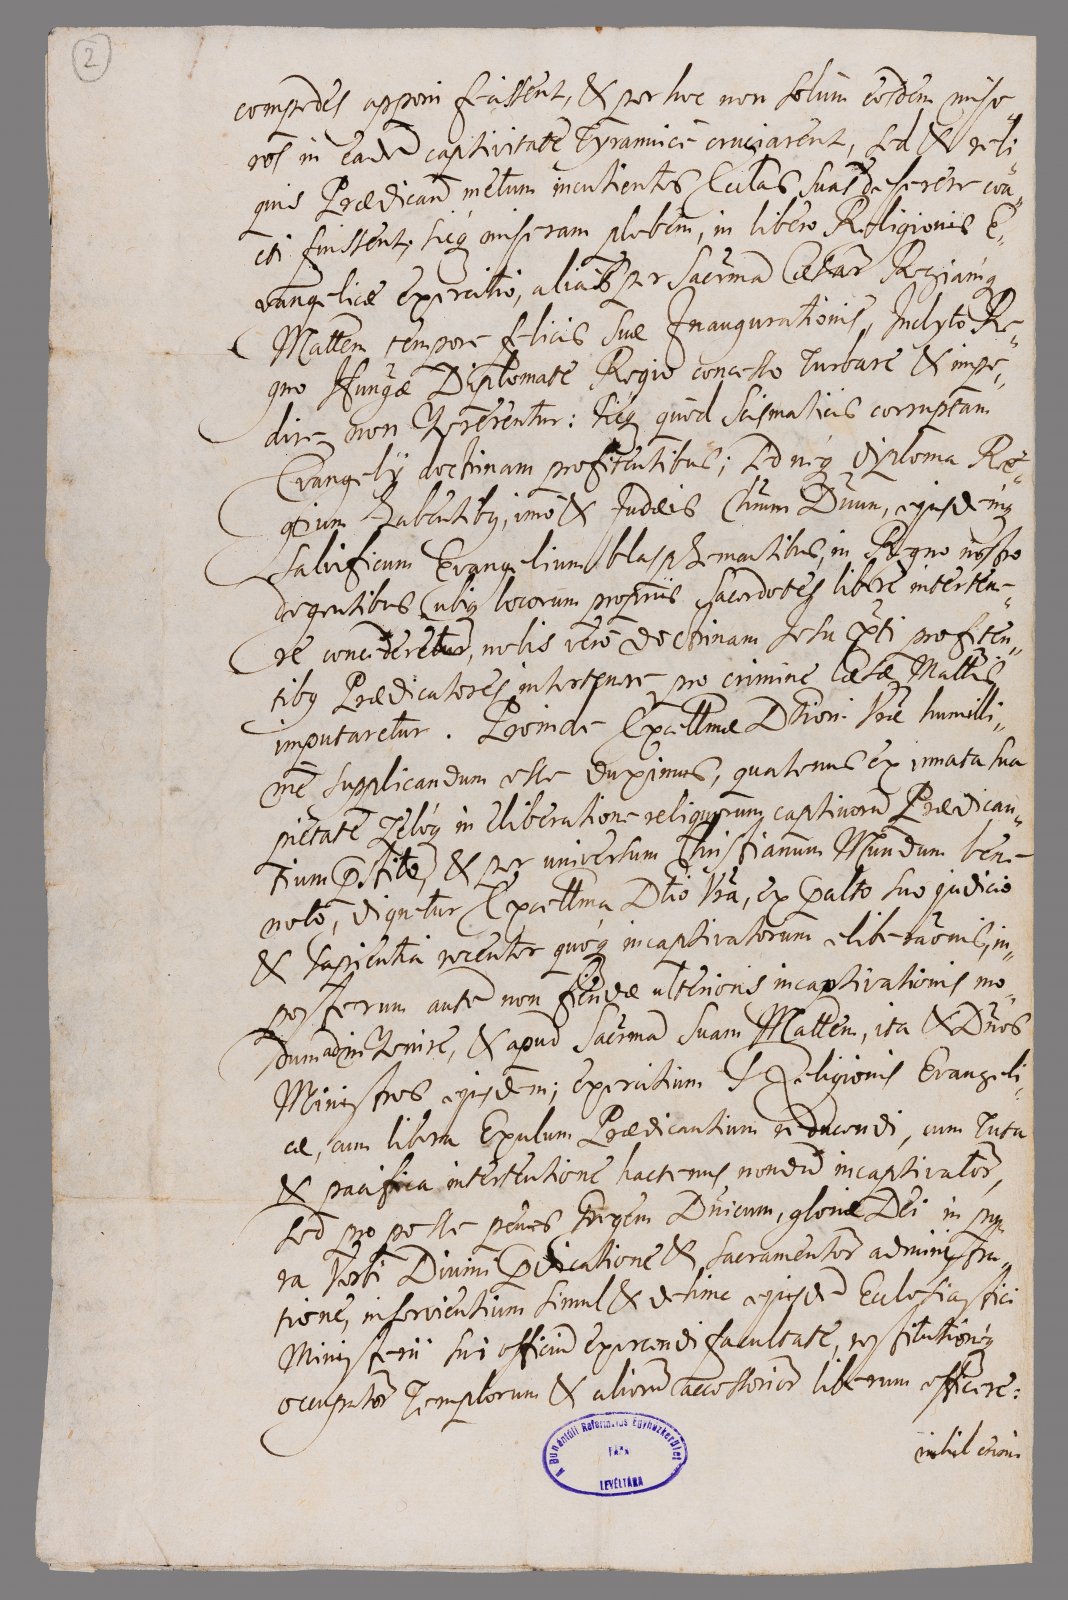 2
compedes apponi fecissent, & per hoc non solum eosdem mise
ros in eadē captivitate Tyrannicè cruciarent, sed & reli„
quis Prædicanđ metum incutientes Ecclas suas deserere coa„
cti fuissent, sicq miseram plebem, in libero Religionis E„
vangelicæ exercitio, alias per Sacrmā Cæsar Regiamq
Mattem tempore felicis suæ Inaugurationis, Inclyto Re„
gno Hungæ Diplomate Regio concesso turbare & impe„
dire non vererentur: sicq quod Scismaticis corruptam
Evangelÿ doctrinam profitentibus; sed neq diploma Re„
gium habentibq, imò & Judæis Chrum Dnum, ejusdemq
salvificum Evangelium blasphemantibus, in Regno nostro
degentibus ubiq locorum proprÿs Sacerdotes liberè interten„
re concederetur, nobis verò doctrinam Jesu Xti profiten„
tibq Prædicatores intertenere pro crimine læsæ Mattis
imputaretur. Proinde Excellmæ Dtioni Vræ humilli„
mè supplicandum esse duximus, quatenus ex innata sua
pietate Zeloq in eliberatione reliquorum captivorū Prædican„
tium præstito, & per universum Christianum Mundum bene
noto, dignetur Excellma Dtio Vra, ex præalto suo judicio
& sapientia recenter quoq incaptivatorum eliberaōnis, in„
posterum autē non fiendæ ulterioris incaptivationis mo„
dum advenire, & apud Sacrmā suam Mattem, ita & Dnos
Ministros ejusdem; exercitium Religionis Evangeli„
cæ, cum libera Exulum Prædicantium reducendi, cum tuta
& pacifica intertentione hactenus nondū incaptivator,
sed pro posse penes Regem Dnicum, gloriæ Dei in pu„
ra Verbi Divini prædicatione & sacramentor administra„
tione, inservientium simul & dehinc ejusdē Ecclesiastici
Ministerii sui officiū exercendi facultate, restitutioneq
occupator Templorum & aliorū accessorior liberum efficere:
nihil enim
A Dunántúli Református Egyházkerület
PÁPA
LEVÉLTÁRA